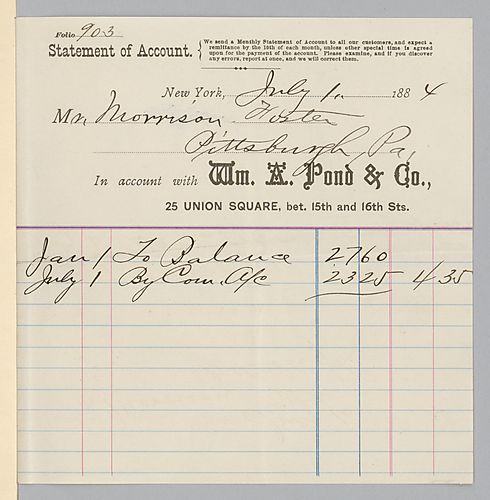 Folio 903
Statement of Account.
We send a Monthly Statement of Account to all our customers, and expect a
remittance by the 10th of each month, unless other special time is agreed
upon for the payment of the account. Please examine, and if you discover
any errors, report at once, and we will correct them.
New York, July 1. 1884
Mr. Morrison Foster
Pittsburgh, Pa,
In account with Wm. A. Pond & Co.,
25 UNION SQUARE, bet. 15th and 16th Sts.
Jan 1 To Balance 27 60
July 1 By Com. A/c 23 25 4 35